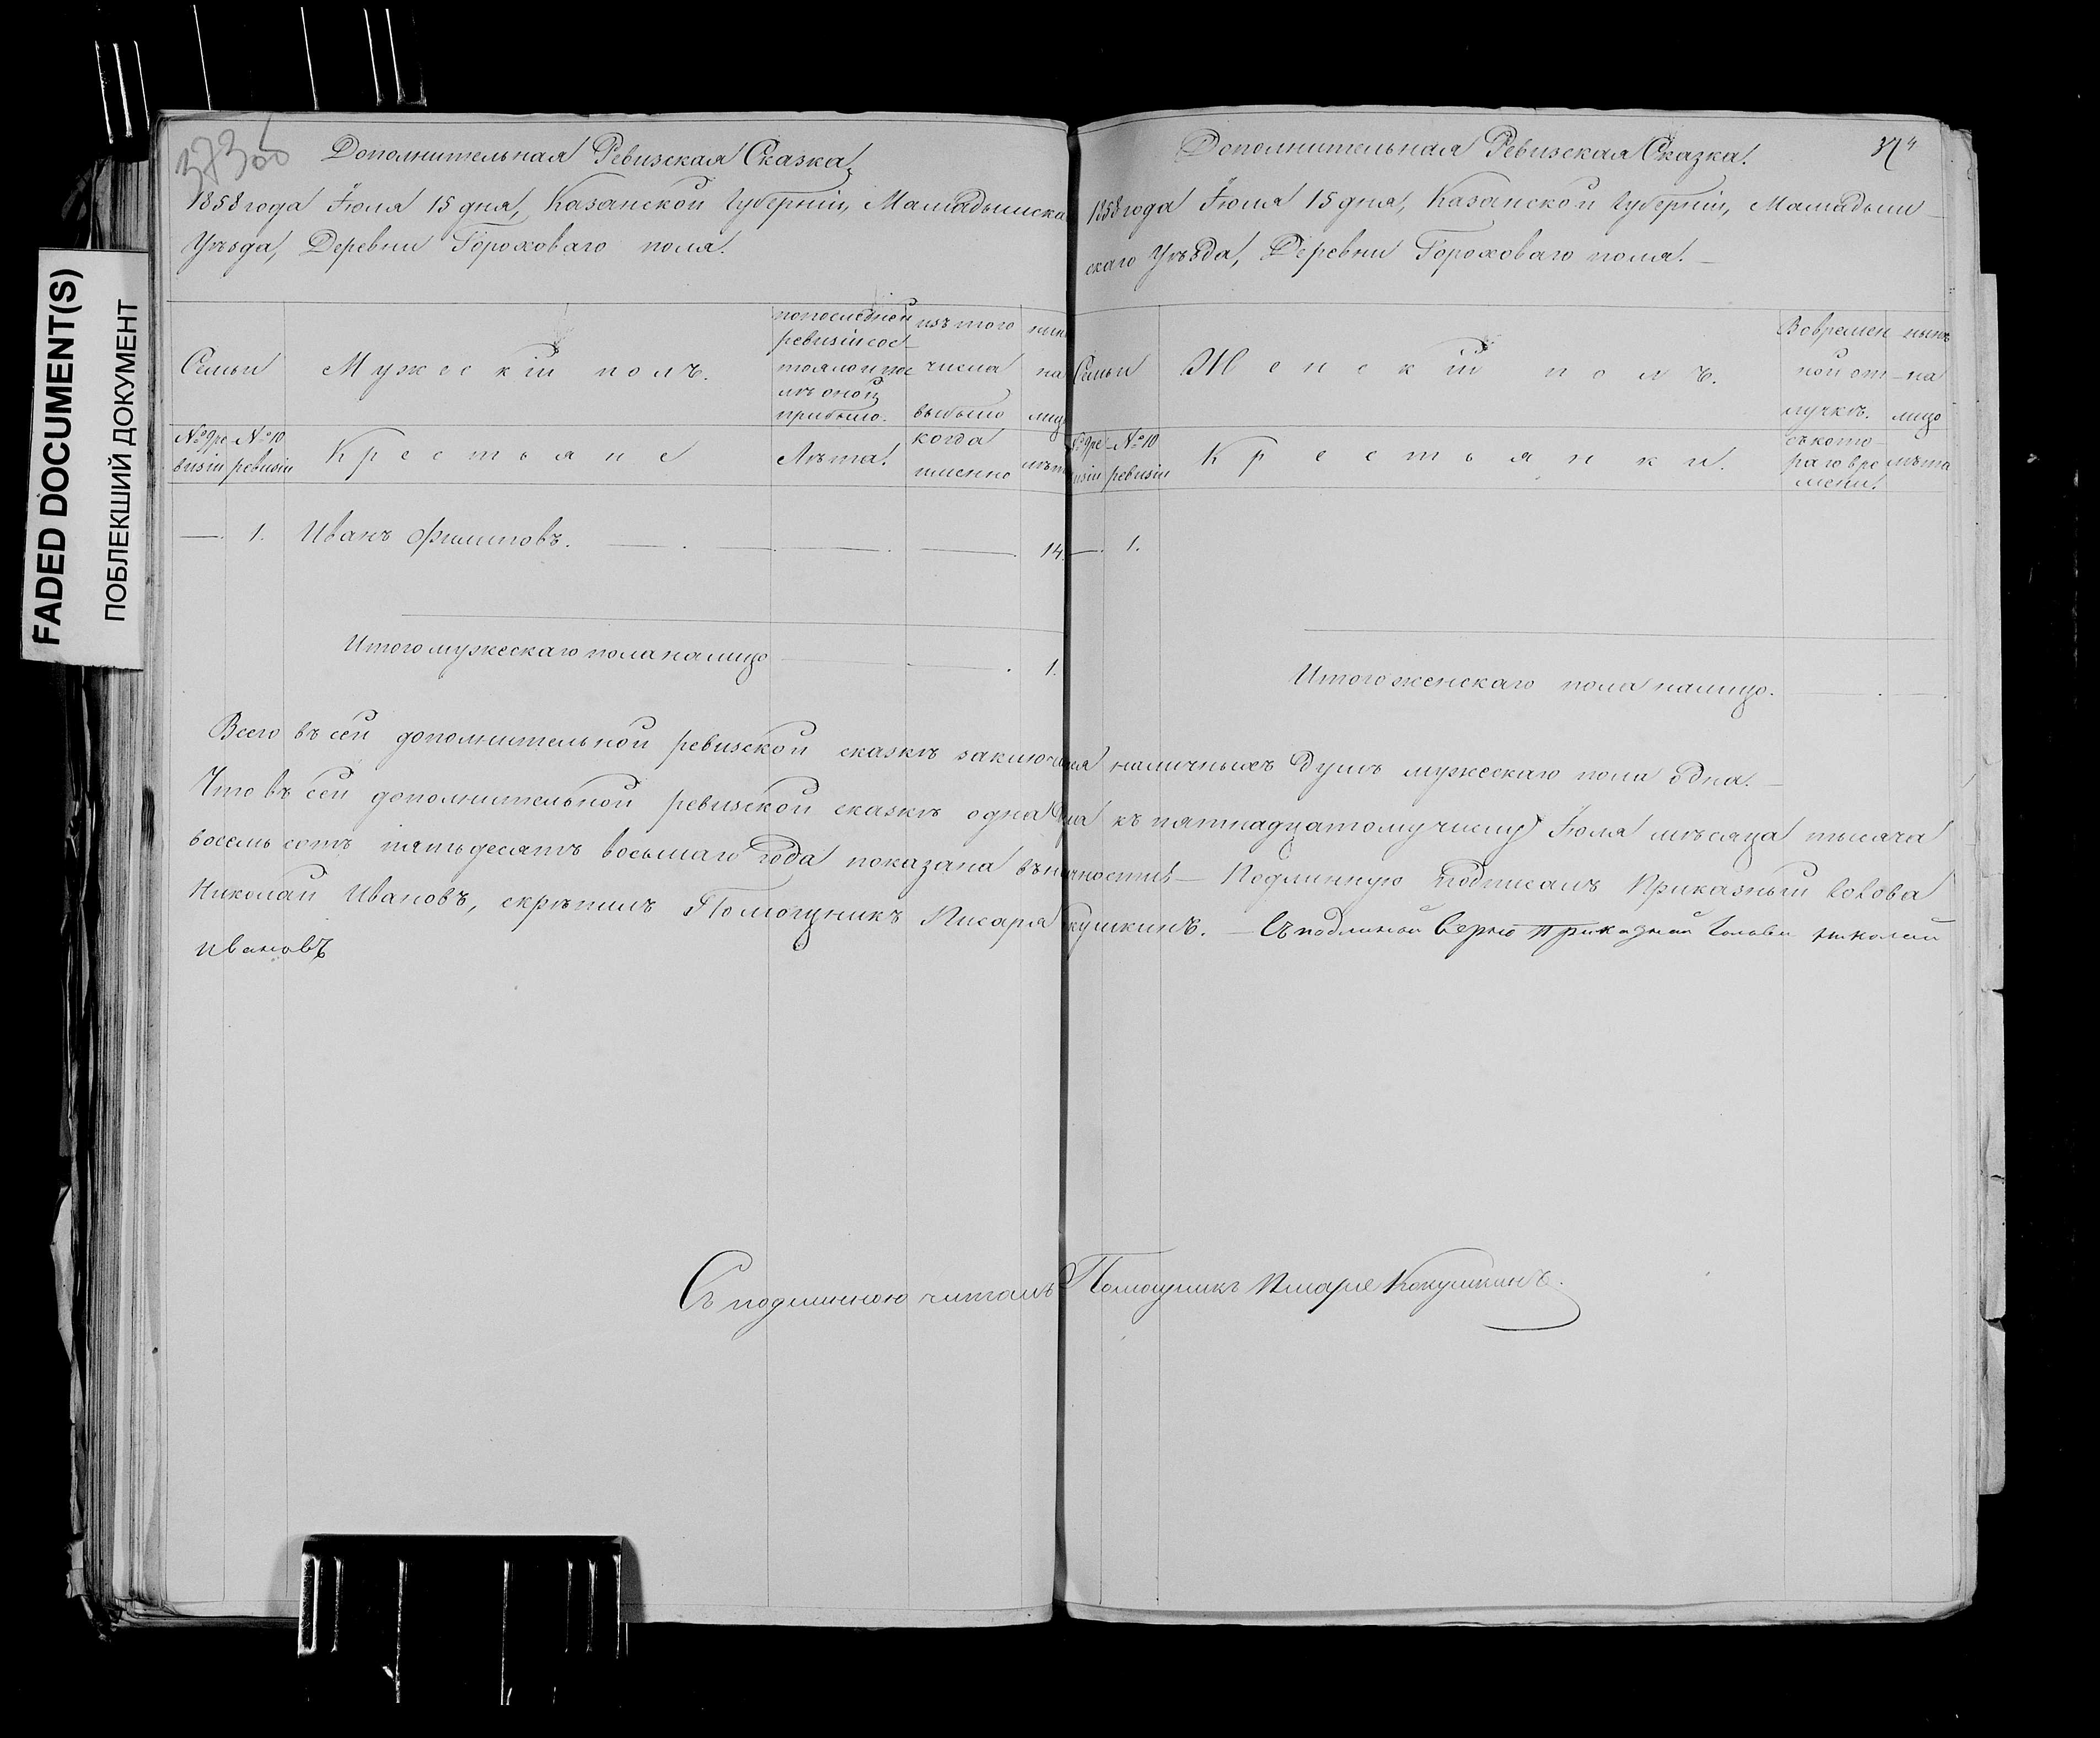 FADED DOCUMENT(S)
ПОБЛЕКШИЙ ДОКУМЕНТ
Дополнительная Ревизская Сказка,
1858 года Іюля 15 дня, Казанской Губерніи, Мамадышска
Уѣзда, Деревни Гороховаго поля.
Семьи
Мужескій полъ.
по последней
ревизіи сос-
тояло и пос
лѣ оной
прибыло.
изъ того
числа
выбыло
на
лицо
№ 9 ре-
визіи
№ 10
ревизіи
Крестьяне
Лѣта.
когда
именно
лѣта
— 1. Иванъ Филиповъ. — — — — 14.
Итого мужескаго пола на лицо — — 1.
Дополнительная Ревизская Сказка.
1858 года Іюля 15 дня, Казанской Губерніи, Мамадыш-
скаго Уѣзда, Деревни Гороховаго поля. —
Семьи
Женскій полъ.
Во времен-
ной от-
лучкѣ.
нынѣ
на
лицо
№ 9 ре
визіи
№ 10
ревизіи
Крестьянки.
съ кото-
раго вре
мени.
лѣта
— 1.
Итого женскаго пола на лицо. — —
Всего въ сей дополнительной ревизской сказкѣ заключа наличныхъ Душъ мужескаго пола одна. —
Что въ сей дополнительной ревизской сказкѣ одна къ пятнадцатому числу Іюля мѣсяца тысяча
восемь сотъ пятьдесятъ восьмаго года показана въ Подлинную подписалъ Приказный Голова
Николай Ивановъ, скрѣпилъ Помощникъ Писаря Кокушкинъ. — Съ подлиной верно Приказной Голова Николай
Ивановъ
Съ подлинною читалъ Помощникъ Писаря Кокушкинъ.